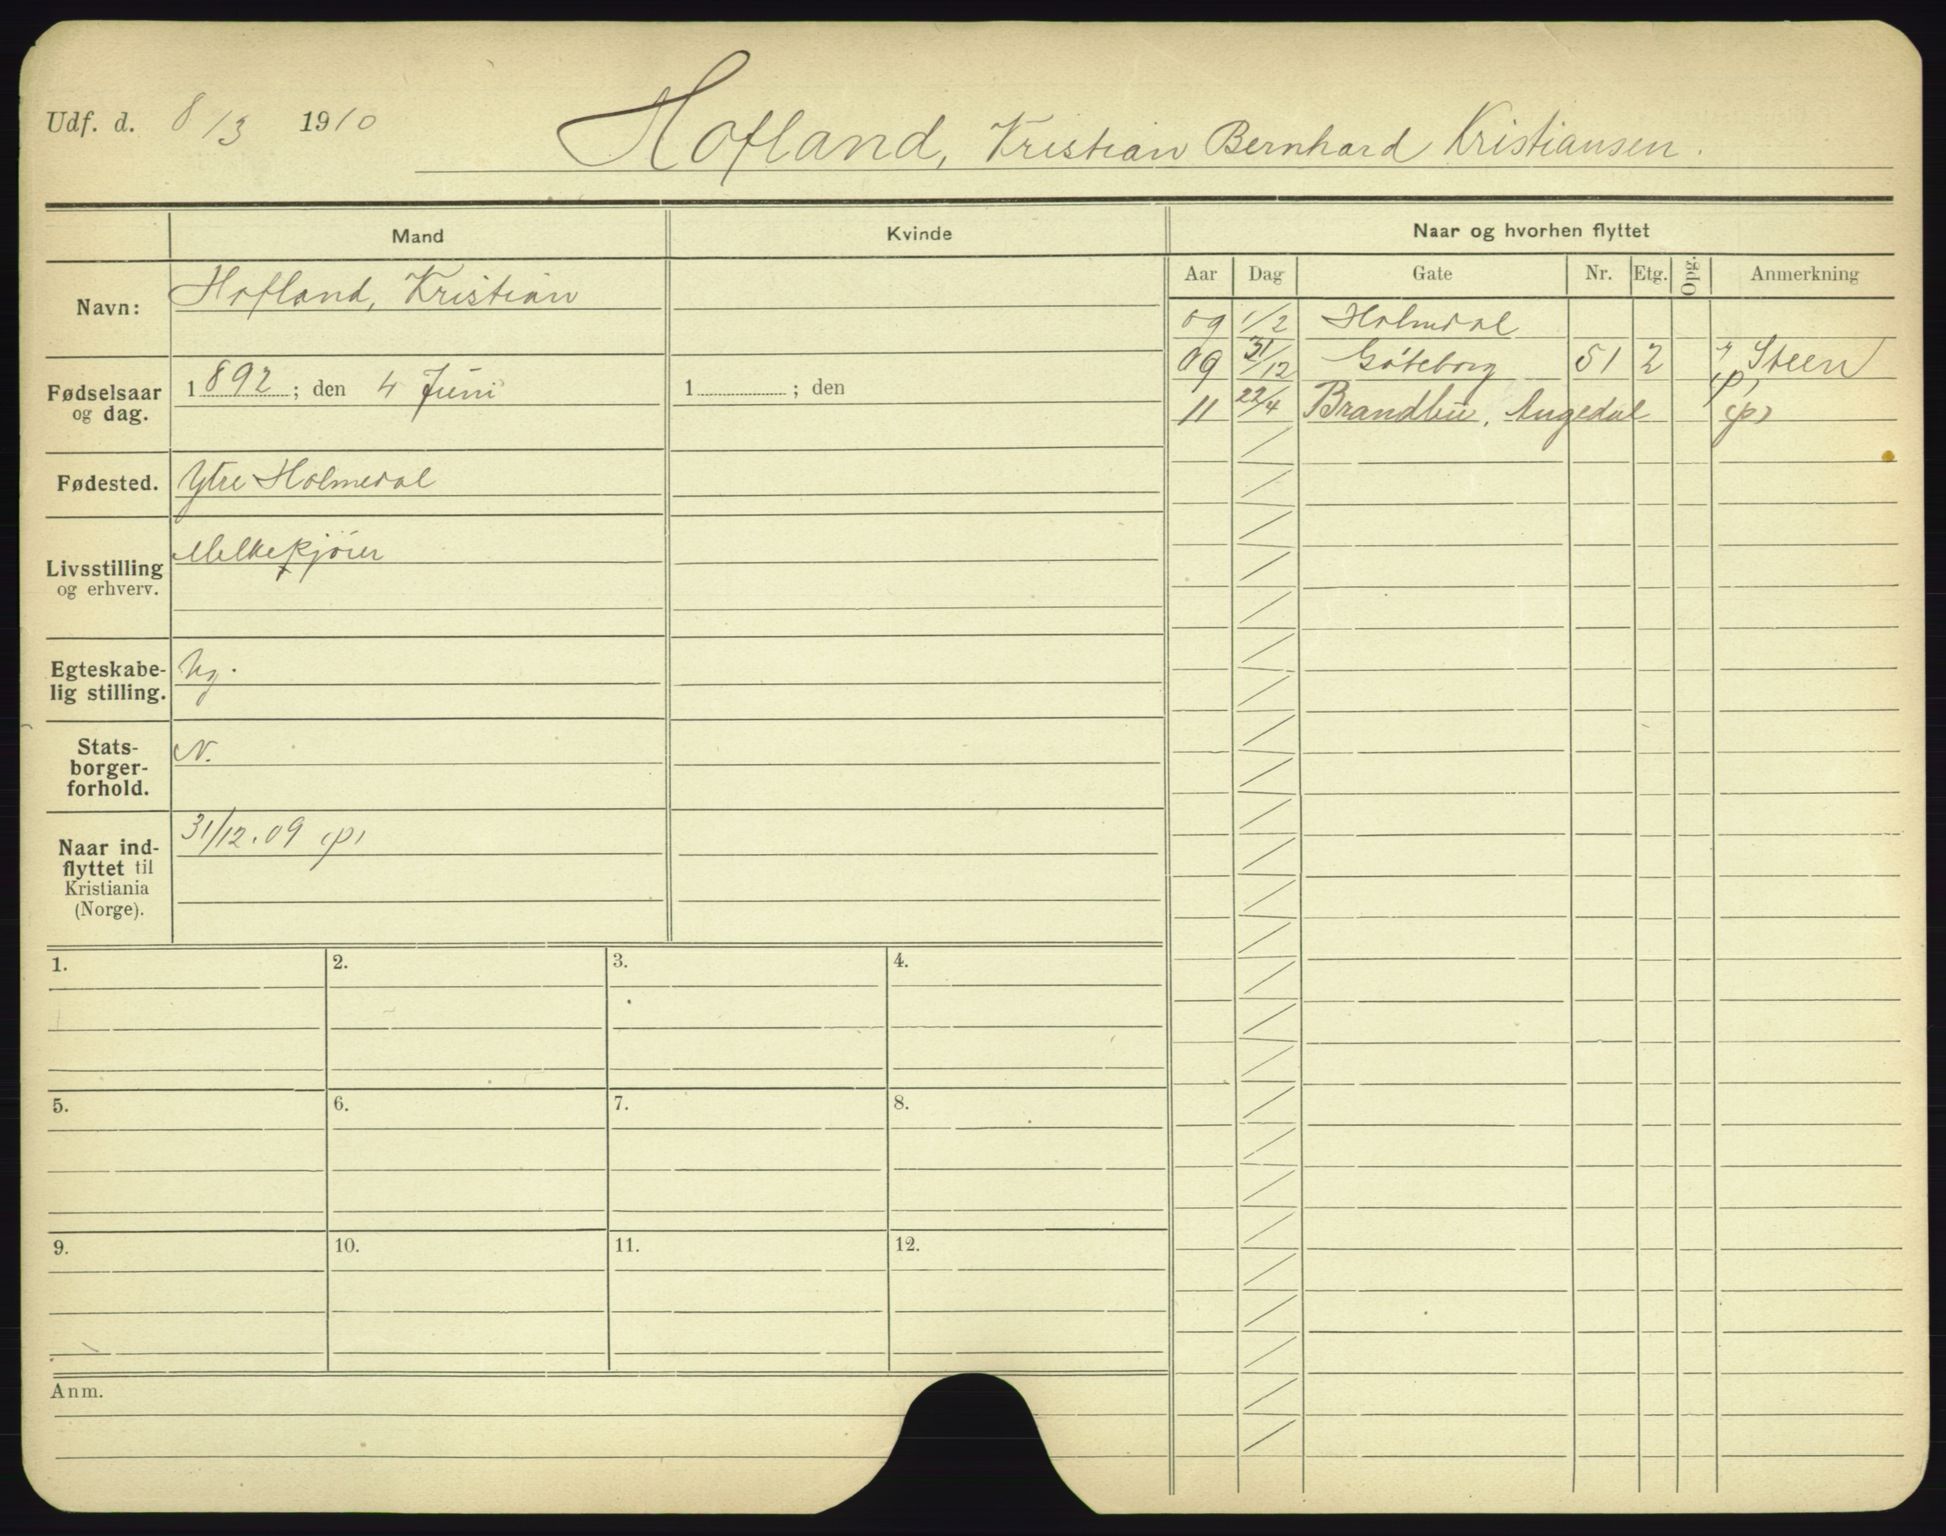 Udf. d. 8/3 1910 Hofland, Kristian Bernhard Kristiansen.
Mand Kvinde Naar og hvorhen flyttet
Aar Dag Gate Nr. Etg. Opg. Anmerkning
Navn: Hofland, Kristian
09 1/2 Holmedal
09 31/12 Göteborg 51 2 Steen
(p)
11 22/4 Brandbu, Augedal (p)
Fødselsaar og dag. 1892; den 4 Juni 1 ; den
Fødested. Ytre Holmedal
Livsstilling og erhverv. Melkekjörer
Egteskabe-
lig stilling. Ug.
Stats-
borger-
forhold. N.
Naar ind-
flyttet til
Kristiania
(Norge). 31/12.09 (p)
1. 2. 3. 4.
5. 6. 7. 8.
9. 10. 11. 12.
Anm.